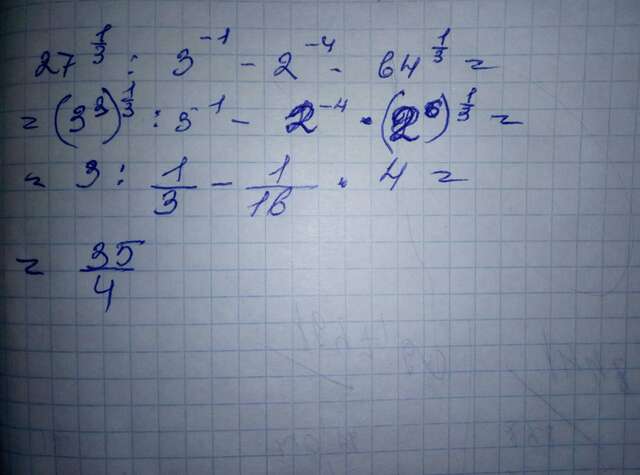 27^{1/3} : 3^{-1} - 2^{-4} · 64^{1/3} =
= (3^3)^{1/3} : 3^{-1} - 2^{-4} · (2^6)^{1/3} =
= 3 : 1/3 - 1/16 · 4 =
= 35/4